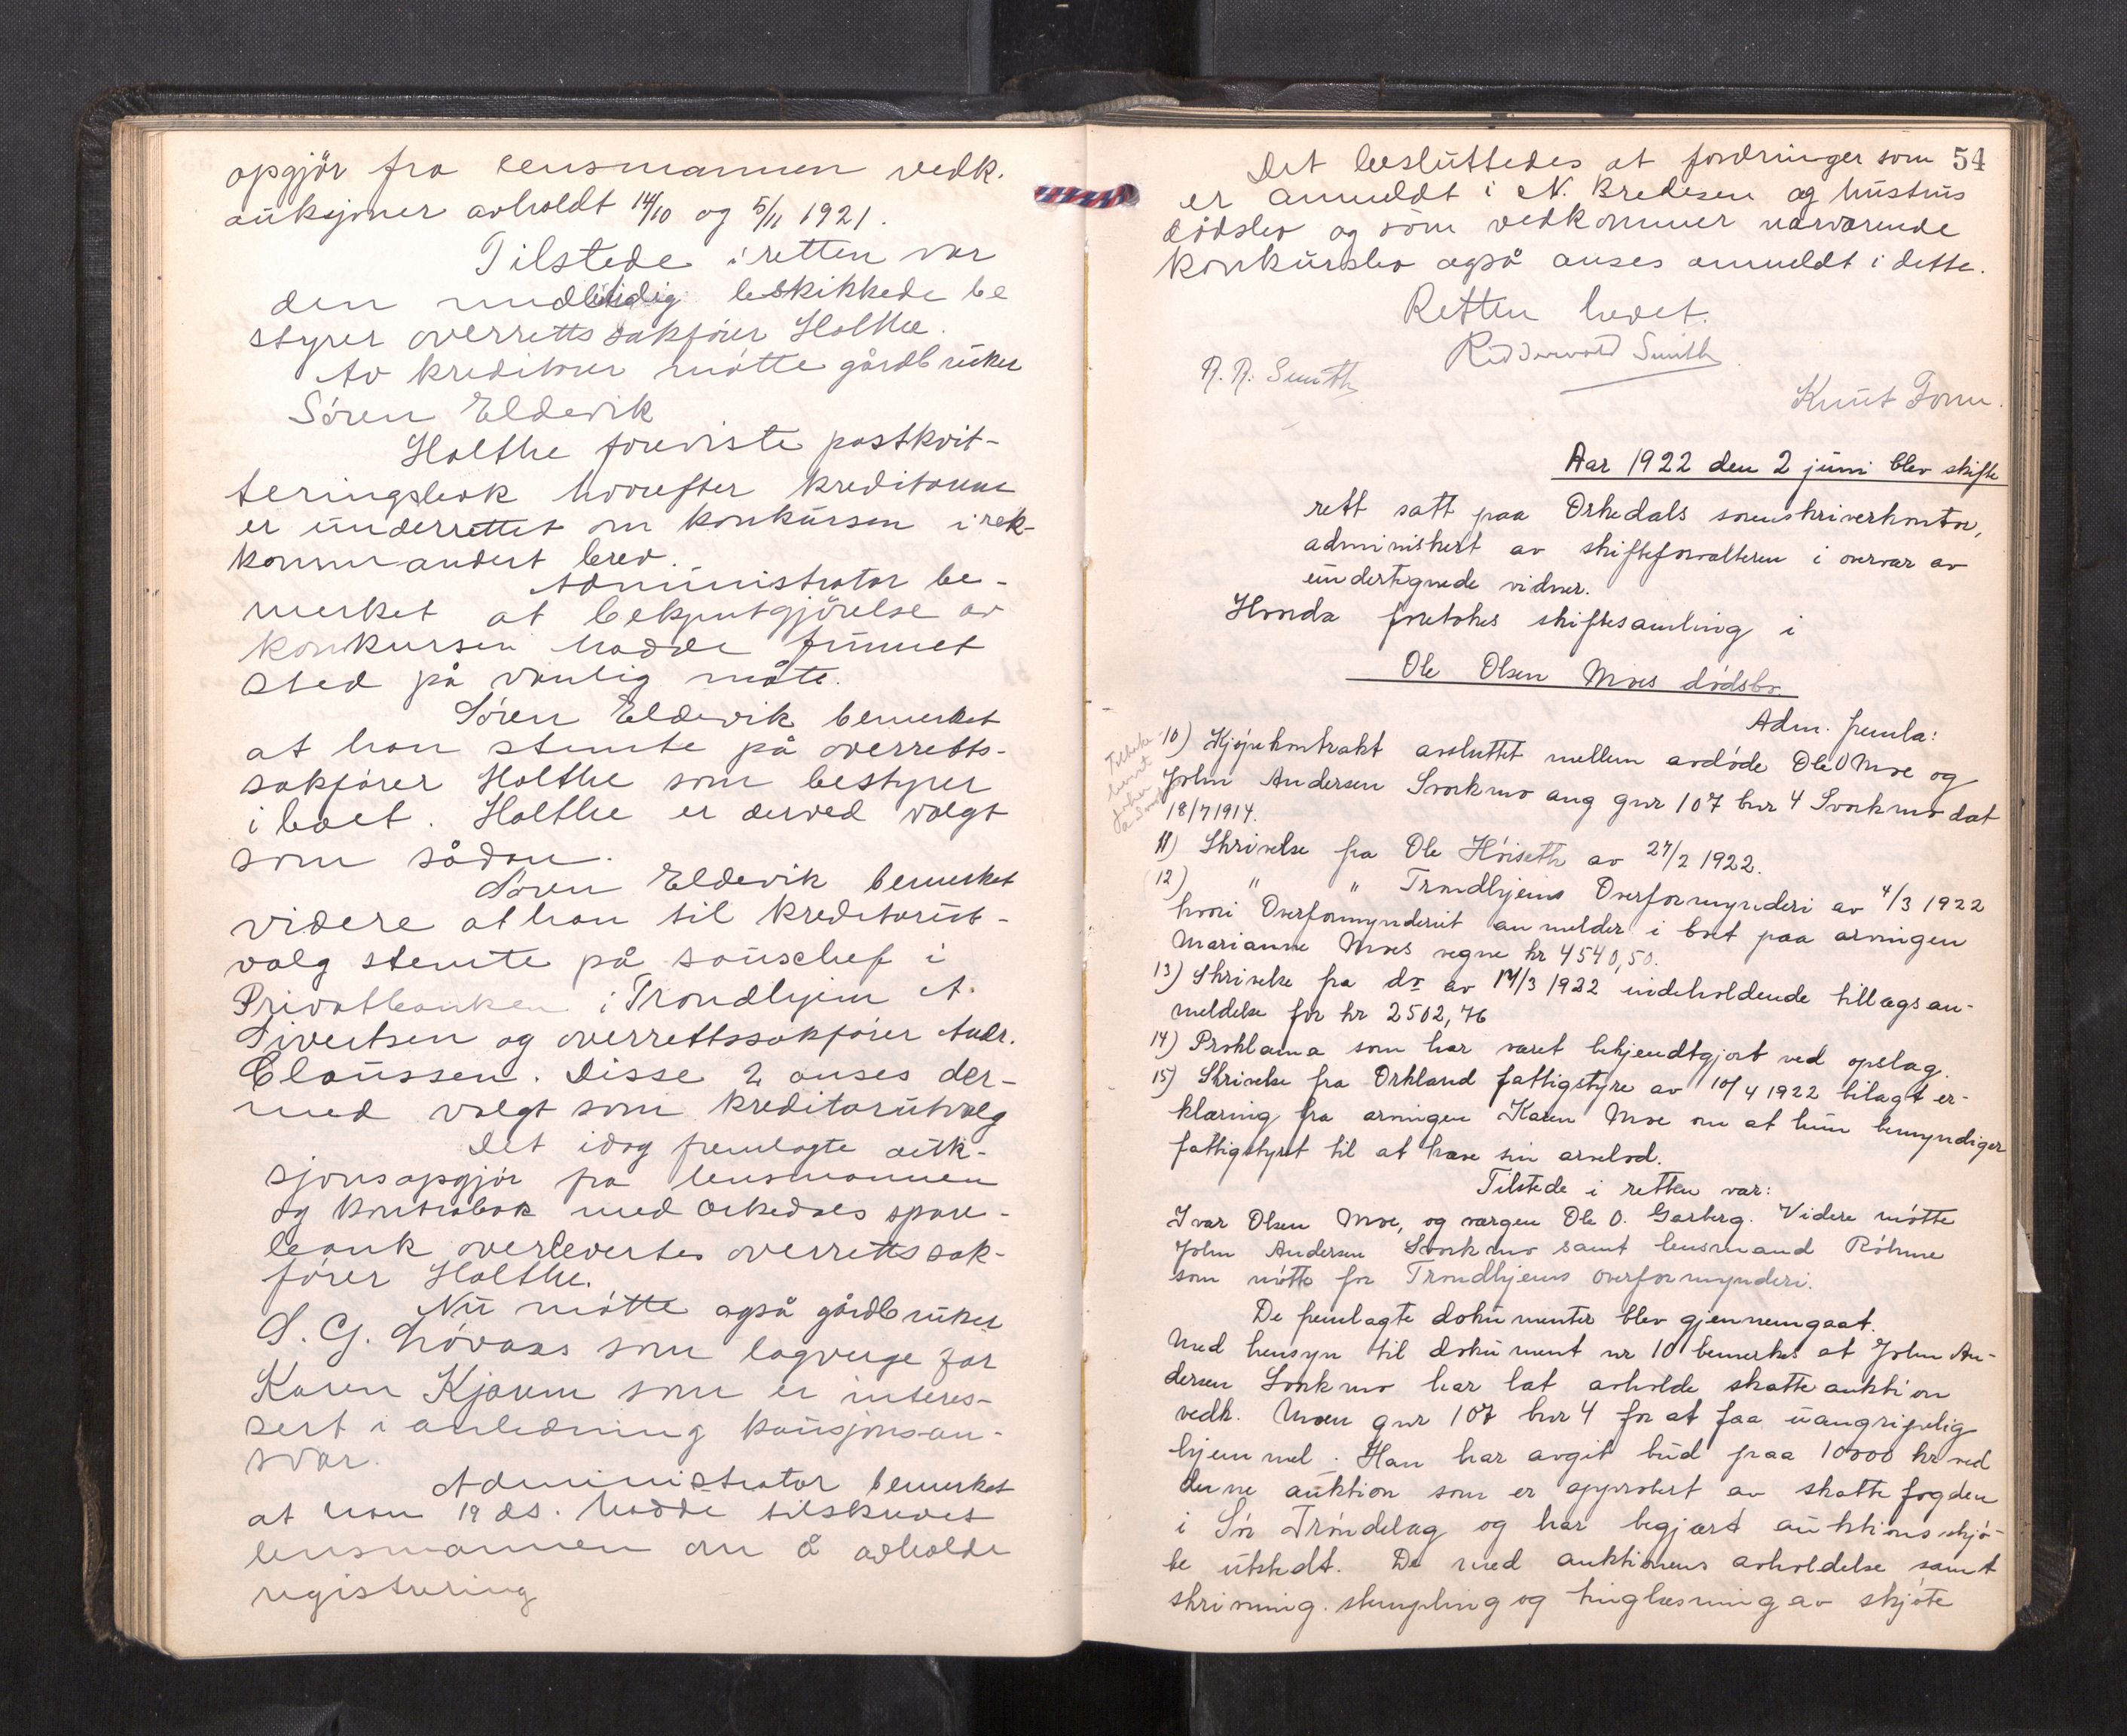 opgjör fra lensmannen vedk.
auksjoner avholdt 14/10 og 5/11 1921.
Tilstede i retten var
den midlertidig beskikkede be
styrer overrettssakförer Holthe.
Av kreditorer mötte gårdbruker
Sören Eldevik
Holthe foreviste postkvit-
teringsbok hvorefter kreditorene
er underrettet om konkursen i rek-
kommandert brev.
Administrator be-
merket at bekjentgjörelse av
konkursen hadde funnet
sted på vanlig måte.
Sören Eldevik bemerket
at han stemte på overretts-
sakförer Holthe som bestyrer
i boet. Holthe er derved valgt
som sådan.
Sören Eldevik bemerket
videre at han til kreditorut-
valg stemte på souschef i
Privatbanken i Trondhjem A.
Sivertsen og overrettssakförer Andr.
Claussen. Disse 2 anses der-
med valgt som kreditorutvalg
Det idag fremlagte auk-
sjonsopgjör fra lensmannen
og kontrabok med Orkedals spare-
bank overlevertes overrettssak-
förer Holthe.
Nu mötte også gårdbruker
S. G. Lövaas som lagverge for
Karen Kjörem som er interes-
sert i anledning kausjonsan-
svar.
Administrator bemerket
at han 19 ds. hadde tilskrevet
lensmannen om å avholde
registrering
54
Det besluttedes at fordringer som
er anmeldt i N. Bredesen og hustrus
dödsbo og som vedkommer nærværende
konkursbo også anses anmeldt i dette.
Retten hevet.
Ridderwold Smith
R. R. Smith
Knut
Aar 1922 den 2 juni blev skifte
rett satt paa Orkedals sorenskriverkontor,
administrert av skifteforvalteren i overvær av
undertegnede vidner.
Hvorda foretokes skiftesamling i
Ole Olsen Moes dödsbo
Adm. fremla:
Tilbake-
levert
John
10) Kjöpekontrakt avsluttet mellem avdöde Ole O Moe og
John Andersen Svorkmo ang gnr 107 bnr 4 Svorkmo dat
18/7 1914.
11) Skrivelse fra Ole Höiseth av 27/2 1922.
12) " " Trondhjems Overformynderi av 4/3 1922
hvori Overformynderiet anmelder i boet paa arvingen
Marianne Moes vegne kr 4540,50.
13) Skrivelse fra do av 14/3 1922 indeholdende tillægsan-
meldelse for kr 2502,76
14) Proklama som har været bekjendtgjort ved opslag.
15) Skrivelse fra Orkland fattigstyre av 10/4 1922 bilagt er-
klæring fra arvingen Karen Moe om at hun bemyndiger
fattigstyret til at hæve sin arvelod.
Tilstede i retten var:
Ivar Olsen Moe, og værgen Ole O. Garberg. Videre mötte
John Andersen Svorkmo samt lensmand Röhme
som mötte for Trondhjems overformynderi.
De fremlagte dokumenter blev gjennemgaat.
Med hensyn til dokument nr 10 bemerkes at John An-
dersen Svorkmo har lat avholde skatteauktion
vedk. Moen gnr 107 bnr 4 for at faa uangripelig
hjemmel. Han har avgit bud paa 10000 kr ved
denne auktion som er approbert av skattefogden
i Sör Tröndelag og har begjært auktionsskjö-
te utstedt. De med auktionens avholdelse samt
skrivning, stempling og tinglæsning av skjöte